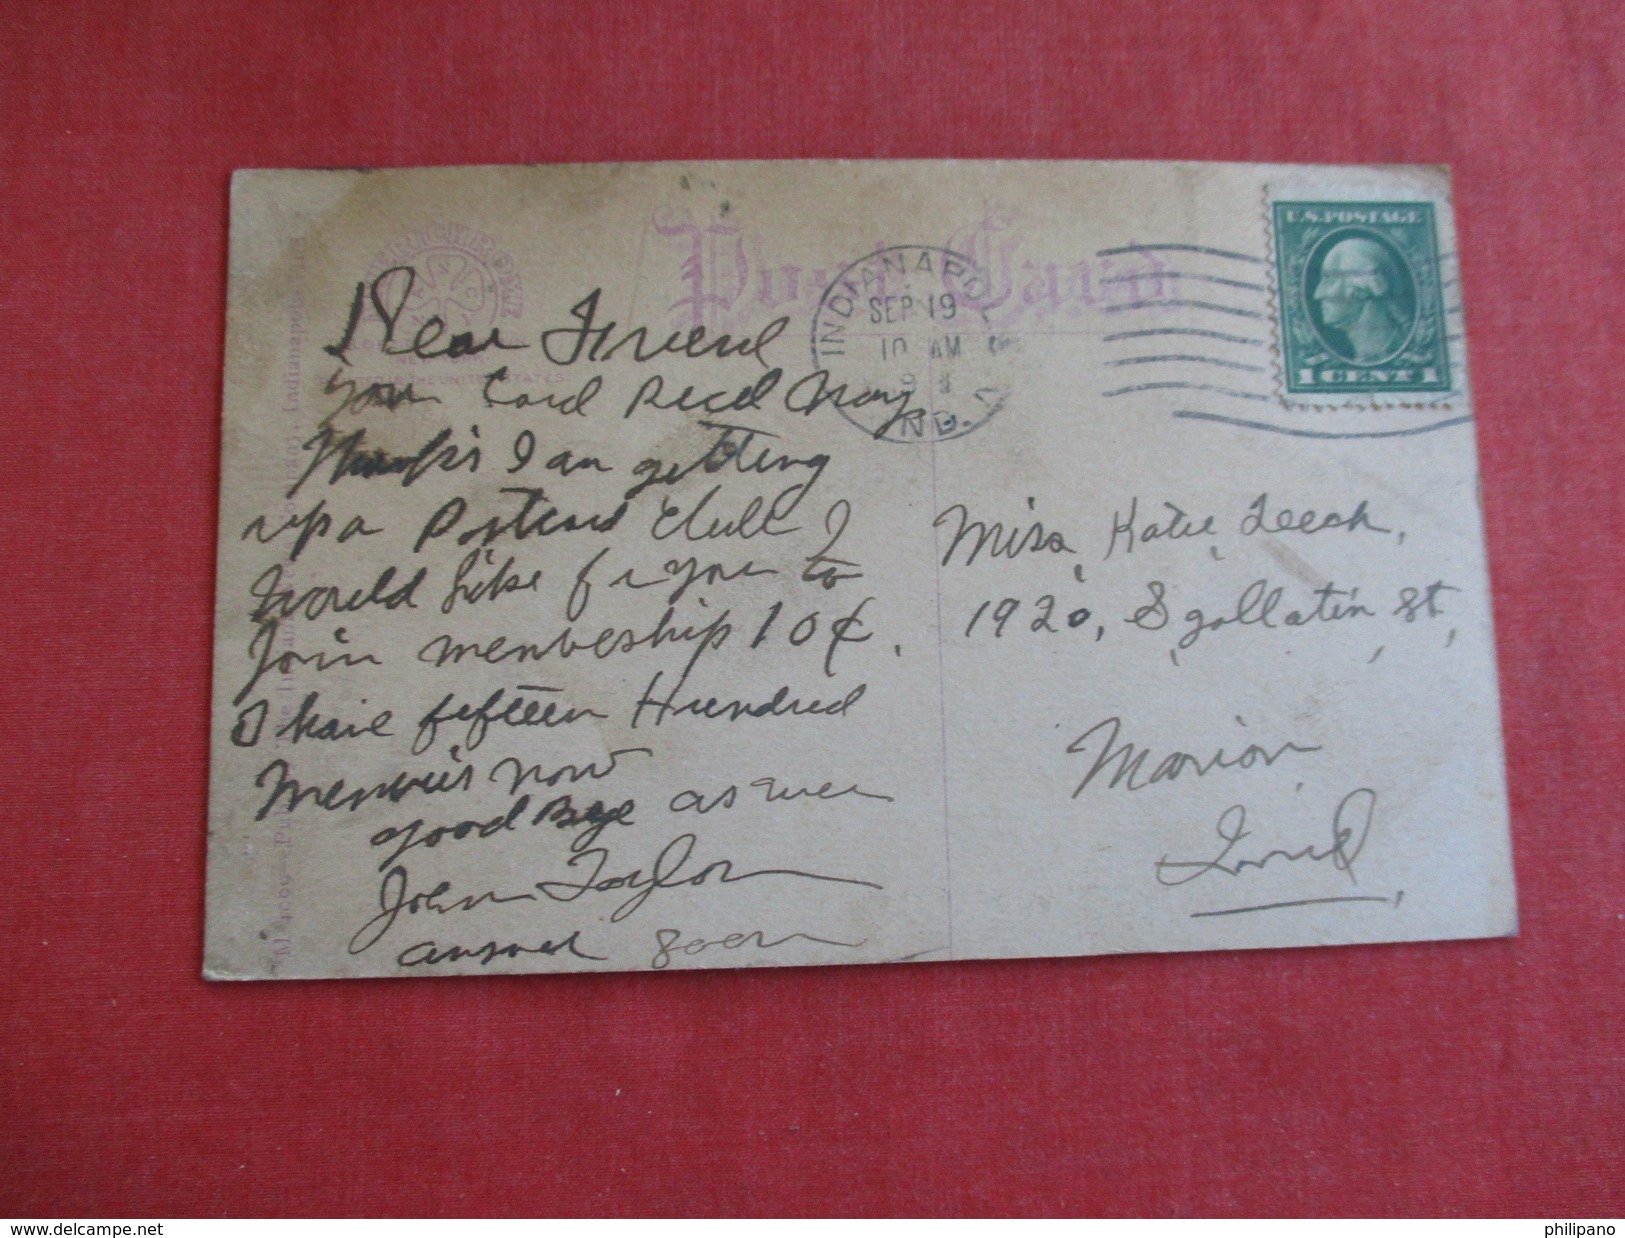 Post Card
INDIANAPO
SEP 19
10 AM
IND.
U.S. POSTAGE
1 CENT 1
Dear Friend
Your Card Recd Many
Thanks I am getting
up a Postcard Club I
Would Like for you to
Join membeship 10¢.
I have fifteen Hundred
now
good Bye as ever
John Taylor
answer soon
Miss, Katie, Leech,
1920, S, gallatin, st,
Marion
Ind,
delcampe.net
philipano